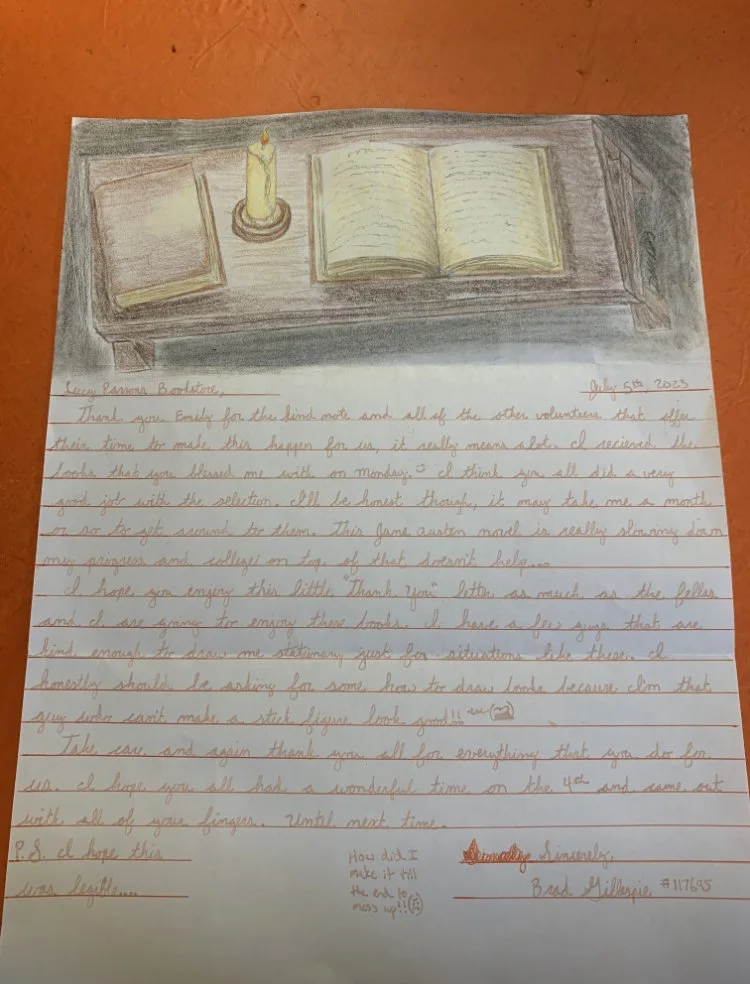 Lucy Parsons Bookstore,
July 5th, 2023
Thank you Emily for the kind note and all of the other volunteers that offer
their time to make this happen for us, it really means alot. I recieved the
books that you blessed me with on monday. I think you all did a very
good job with the selection. I'll be honest though, it may take me a month
or so to get around to them. This Jane Austen novel is really slowing down
my progress and college on top of that doesn't help...
I hope you enjoy this little "Thank You" letter as much as the fellas
and I are going to enjoy these books. I have a few guys that are
kind enough to draw me stationary just for situations like these. I
honestly should be asking for some how to draw books because I'm that
guy who can't make a stick figure look good!!
Take care and again thank you all for everything that you do for
us. I hope you all had a wonderful time on the 4th and came out
with all of your fingers. Until next time.
P.S. I hope this
was legible....
How did I
make it till
the end to
mess up!!
Sincerely,
Brad Gillespie #117695